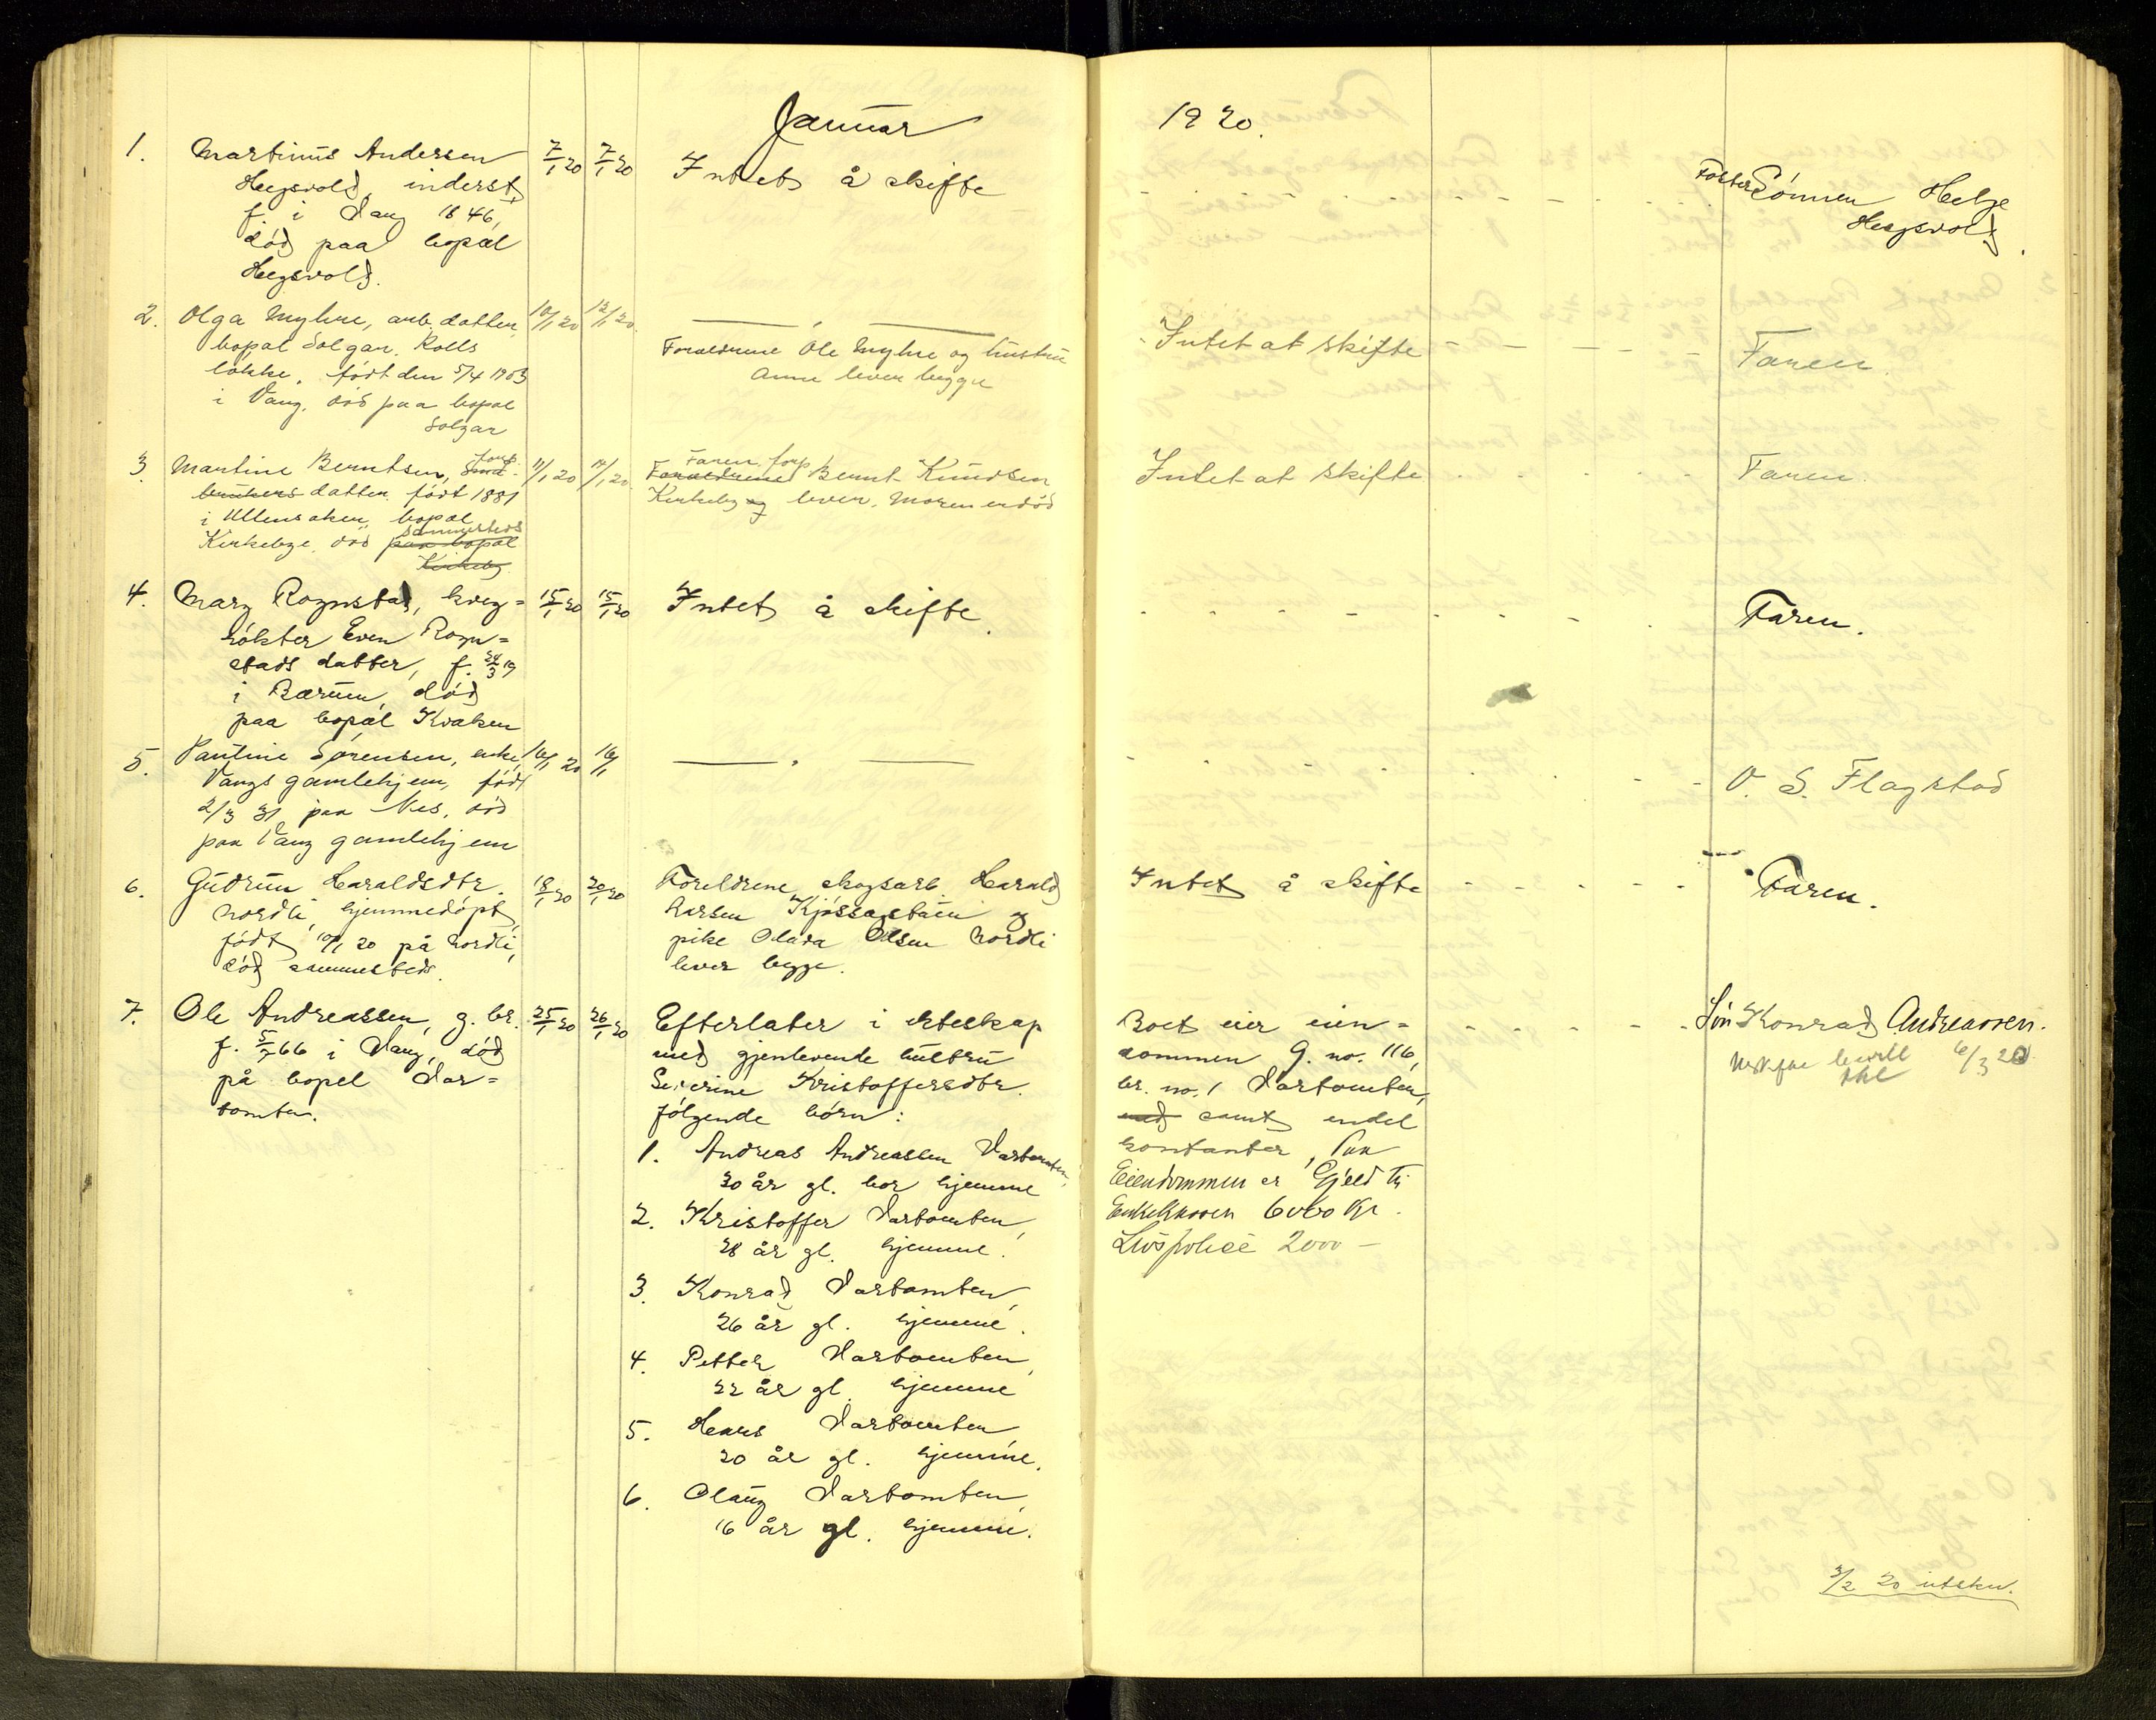 Januar
1920.
1. Martinus Andersen 7/1 20 7/1 20 Intet å skifte Foster Sønnen Helge
Hegsvold, inderst, Hegsvold.
f. i Vang 1846,
død paa bopæl
Hegsvold.
2. Olga Myhre, arb. datter, 10/1 20 12/1 20 Intet at skifte Faren.
bopæl Solgar. Rolls Forældrene Ole Myhre og hustru
løkke, født den 5/4 1903 Anne lever begge
i Vang, død paa bopæl
Solgar
3 Martine Berntsen, forp. 11/1 20 14/1 20 Faren forp. Intet at skifte Faren.
brukers datter født 1881 Forældrene Bernt Knudsen
i Ullensaker, bopæl Kirkeby og lever. Moren er død
Kirkebye, død sammesteds
paa bopæl
Kirkeby
4. Mary Rognstad, kreg= 15/1 20 15/1 20 Intet å skifte. Faren.
røkter Even Rogn=
stads datter, f. 24/3 19
i Bærum, død
paa bopæl Kvaken
5. Pauline Sørensen, enke, 16/1 20 16/1 O. S. Flagstad
Vangs gamlehjem, født
2/3 31 paa Nes, død
paa Vang gamlehjem
6. Gudrun Haraldsdtr. 18/1 20 20/1 20 Foreldrene, skogsarb. Harald Intet å skifte Faren.
Nordli, hjemmedøpt, Larsen Kjøssastuen og
født 10/1 20 på Nordli, pike Olava Olsen Nordli
død sammesteds. lever begge.
7. Ole Andreassen, g. br. 25/1 20 26/1 20 Efterlater i ekteskap Boet eier eien= Søn Konrad Andreassen.
f. 5/7 66 i Vang, død med gjenlevende hustru dommen G. no. 116, 6/3 20
på bopel Var= Severine Kristoffersdtr. br. no. 1 Vartomten,
tomten. følgende børn: med samt endel
1. Andreas Andreassen Vartomten, kontanter, Paa
30 år gl. bor hjemme Eiendommen er Gjeld til
2. Kristoffer Vartomten, Enkekassen 6000 Kr.
28 år gl. hjemme. Livspolice 2000 —
3. Konrad Vartomten,
26 år gl. hjemme.
4. Petter Vartomten,
22 år gl. hjemme
5. Hans Vartomten,
20 år gl. hjemme.
6. Olaug Vartomten,
16 år gl. hjemme.
3/2 20 utskr.